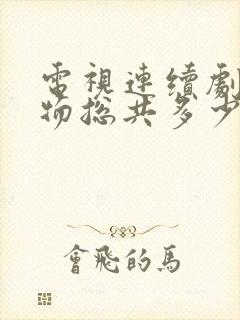 電視連續劇
物捴共多少
會飛的馬